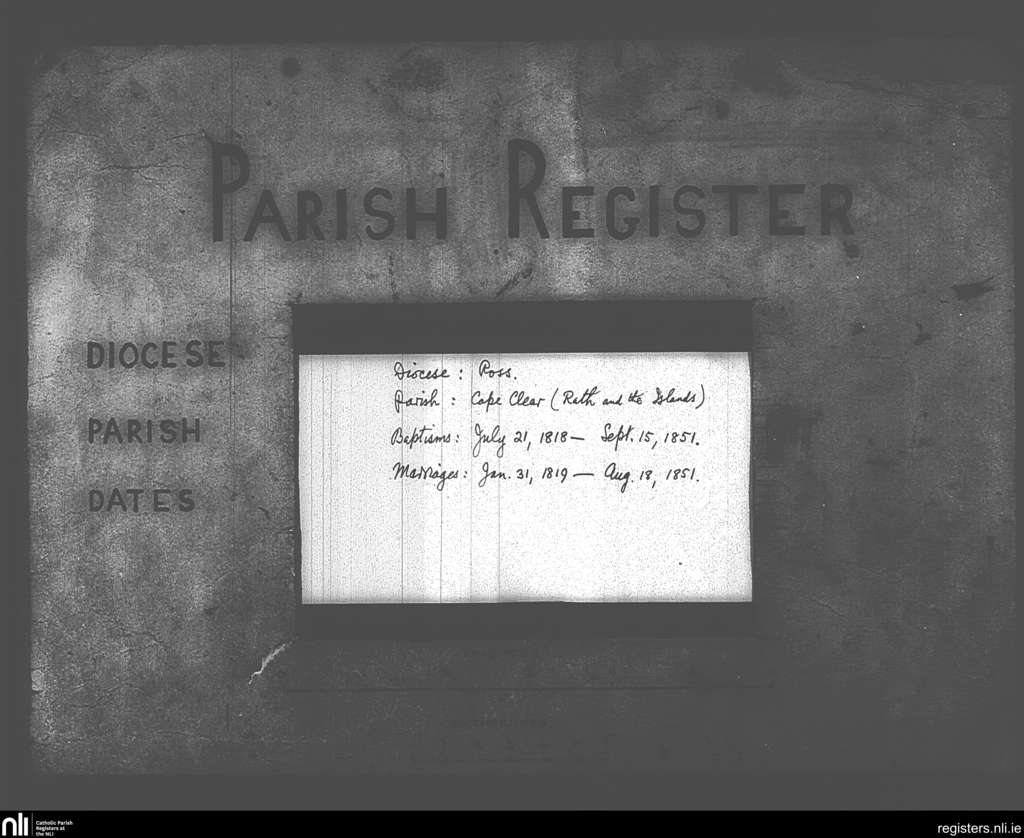 PARISH REGISTER
DIOCESE
PARISH
DATES
Diocese : Ross.
Parish : Cape Clear (Rath and the Islands)
Baptisms : July 21, 1818 — Sept. 15, 1851.
Marriages : Jan. 31, 1819 — Aug. 18, 1851.
nli
Catholic Parish
Registers at
the NLI
registers.nli.ie